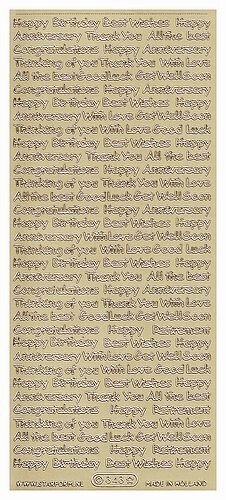 Happy Birthday Best Wishes Happy
Anniversary Thank You All the best
Congratulations Happy Anniversary
Thinking of you Thank You With Love
All the best Good Luck Get Well Soon
Congratulations Happy Anniversary
Happy Birthday Best Wishes Happy
Anniversary With Love Get Well Soon
Thinking of you With Love Good Luck
Happy Birthday Best Wishes Happy
Anniversary Thank You All the best
Congratulations Happy Anniversary
Thinking of you Thank You With Love
All the best Good Luck Get Well Soon
Congratulations Happy Anniversary
Happy Birthday Best Wishes Happy
Anniversary With Love Get Well Soon
Thinking of you With Love Good Luck
Happy Birthday Best Wishes Happy
Anniversary Thank You All the best
Thinking of you Thank You With Love
All the best Good Luck Get Well Soon
Congratulations Happy Retirement
Happy Birthday Best Wishes Happy
Anniversary With Love Get Well Soon
Thinking of you With Love Good Luck
Happy Birthday Best Wishes Happy
Anniversary Thank You All the best
Congratulations Happy Retirement
Thinking of you Thank You With Love
All the best Good Luck Get Well Soon
Congratulations Happy Anniversary
Happy Birthday Best Wishes Happy
WWW.STARFORM.NL © 343 MADE IN HOLLAND